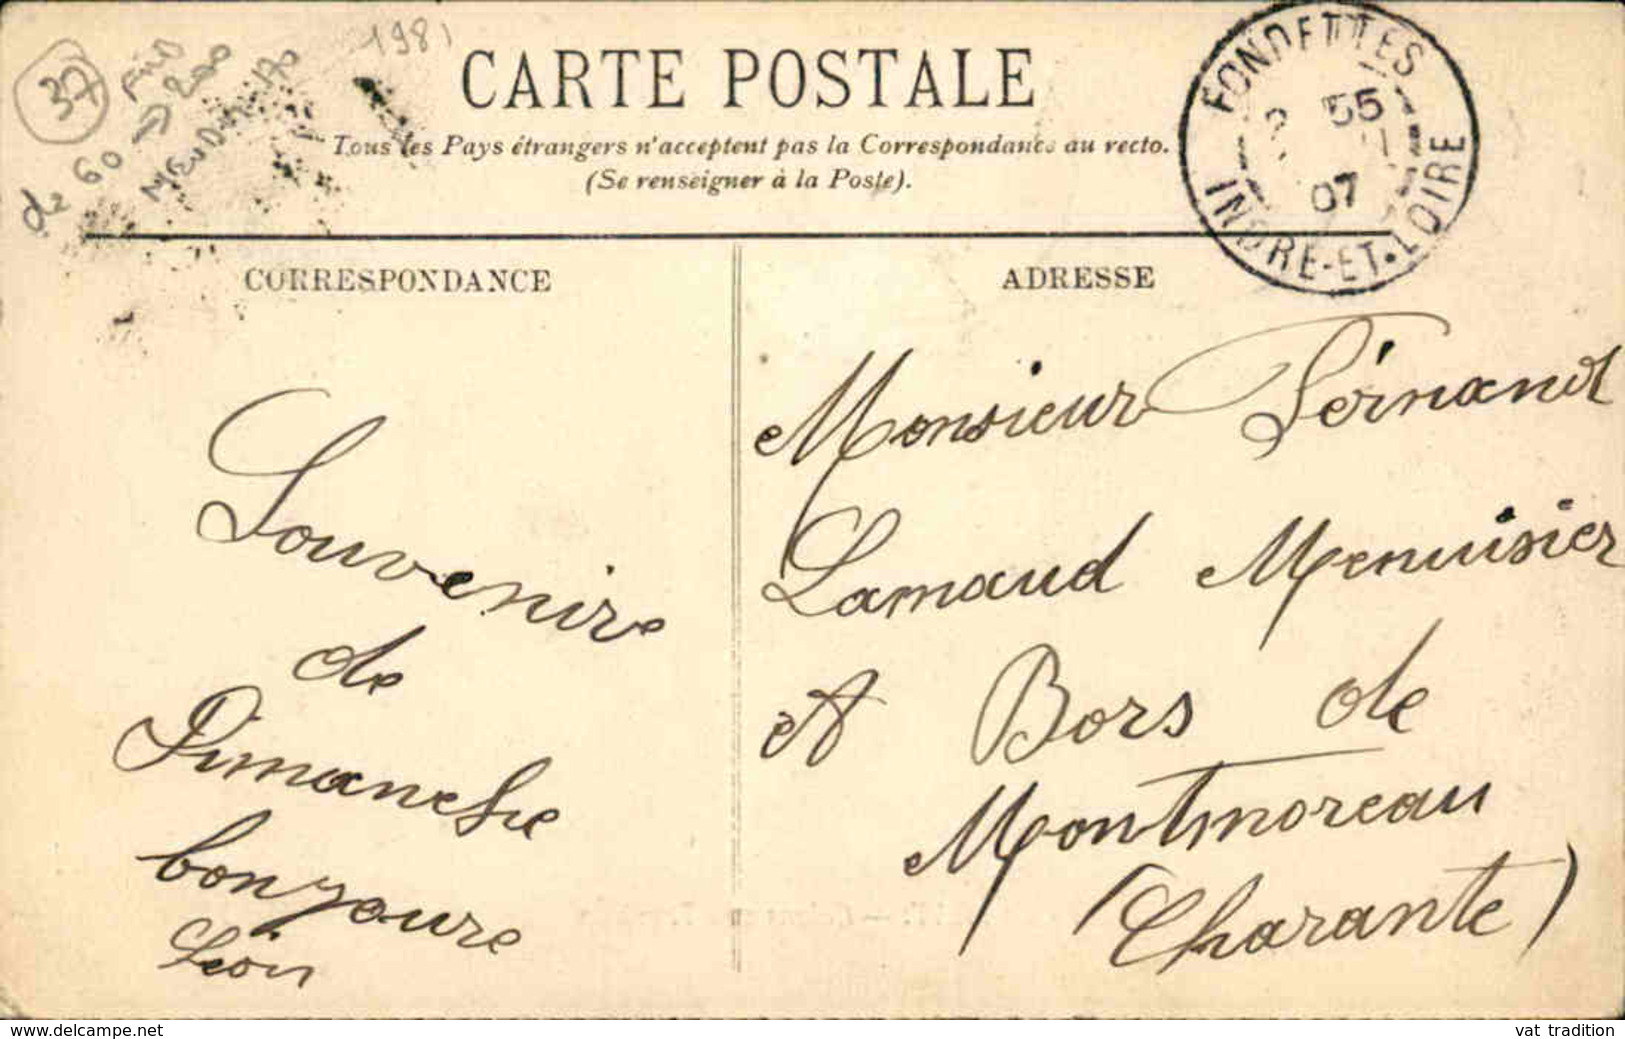 1981
37
de 60 → 200
CARTE POSTALE
Tous les Pays étrangers n'acceptent pas la Correspondance au recto.
(Se renseigner à la Poste).
FONDETTES
55
07
INDRE-ET-LOIRE
CORRESPONDANCE
Souvenire
de
Dimanche
bonjoure
Léon
ADRESSE
Monsieur Férnand
Lamaud Menuisier
A Bors de
Montmoreau
(Charante)
www.delcampe.net
vat tradition